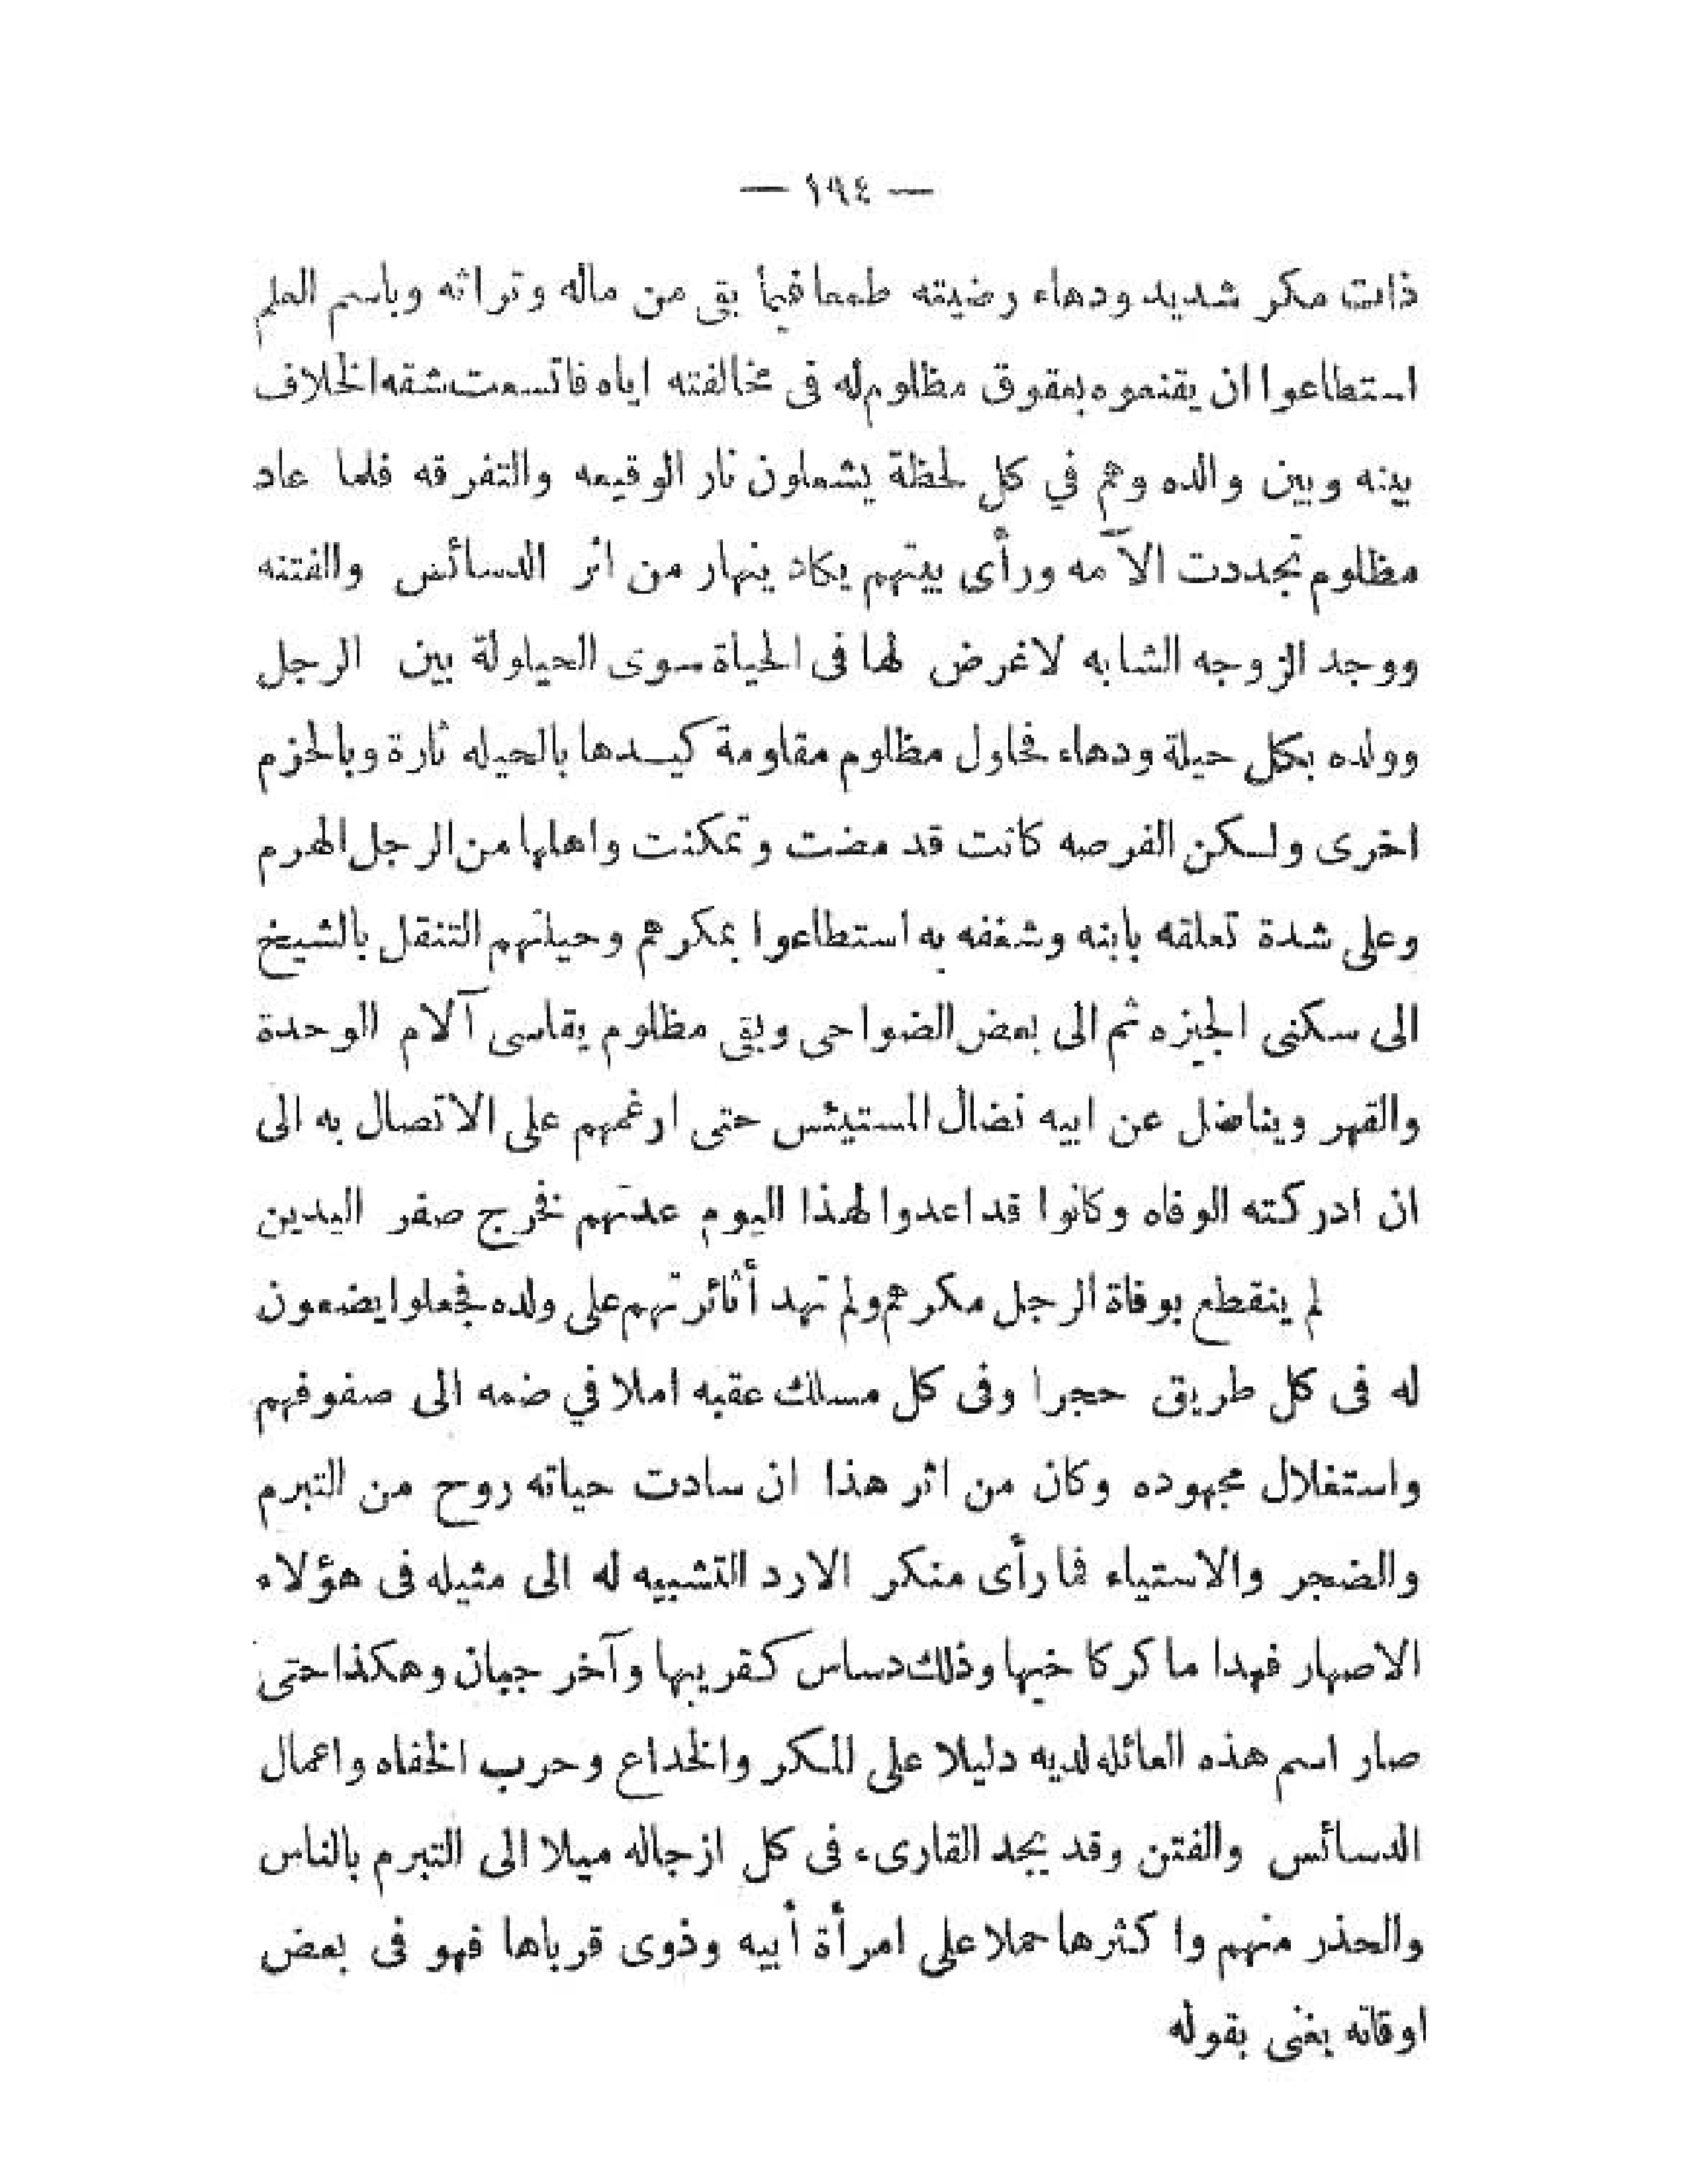 — ١٩٤ —
ذات مكر شديد ودهاء رضيته طمعا فيما بقى من ماله وتراثه وباسم العلم
استطاعوا ان يقنعوه بعقوق مظلوم له فى مخالفته اياه فاتسعت شقه الخلاف
بينه وبين والده وهم في كل لحظة يشعلون نار الوقيعه والتفرقه فلما عاد
مظلوم تجددت الآمه ورأى بيتهم يكاد ينهار من اثر الدسائس والفتنه
ووجد الزوجه الشابه لاغرض لها فى الحياة سوى الحياولة بين الرجل
وولده بكل حيلة ودهاء فحاول مظلوم مقاومة كيدها بالحيله تارة وبالحزم
اخرى ولكن الفرصه كانت قد مضت وتمكنت واهلها من الرجل الهرم
وعلى شدة تعلقه بابنه وشغفه به استطاعوا بمكرهم وحيلتهم التنقل بالشيخ
الى سكنى الجيزه ثم الى بعض الضواحى وبقى مظلوم يقاسى آلام الوحدة
والقهر ويناضل عن ابيه نضال المستيئس حتى ارغمهم على الاتصال به الى
ان ادركته الوفاه وكانوا قد اعدوا لهذا اليوم عدتهم فخرج صفر اليدين
لم ينقطع بوفاة الرجل مكرهم ولم تهد أثائرتهم على ولده فجعلوا يضعون
له فى كل طريق حجرا وفى كل مسلك عقبه املا في ضمه الى صفوفهم
واستغلال مجهوده وكان من اثر هذا ان سادت حياته روح من التبرم
والضجر والاستياء فما رأى منكر الارد التشبيه له الى مثيله فى هؤلاء
الاصهار فهدا ماكر كا خيها وذلك دساس كقريبها وآخر جبان وهكذا حتى
صار اسم هذه العائله لديه دليلا على المكر والخداع وحرب الخفاه واعمال
الدسائس والفتن وقد يجد القارىء فى كل ازجاله ميلا الى التبرم بالناس
والحذر منهم وا كثرها حملا على امرأة أبيه وذوى قرباها فهو فى بعض
اوقاته يغنى بقوله